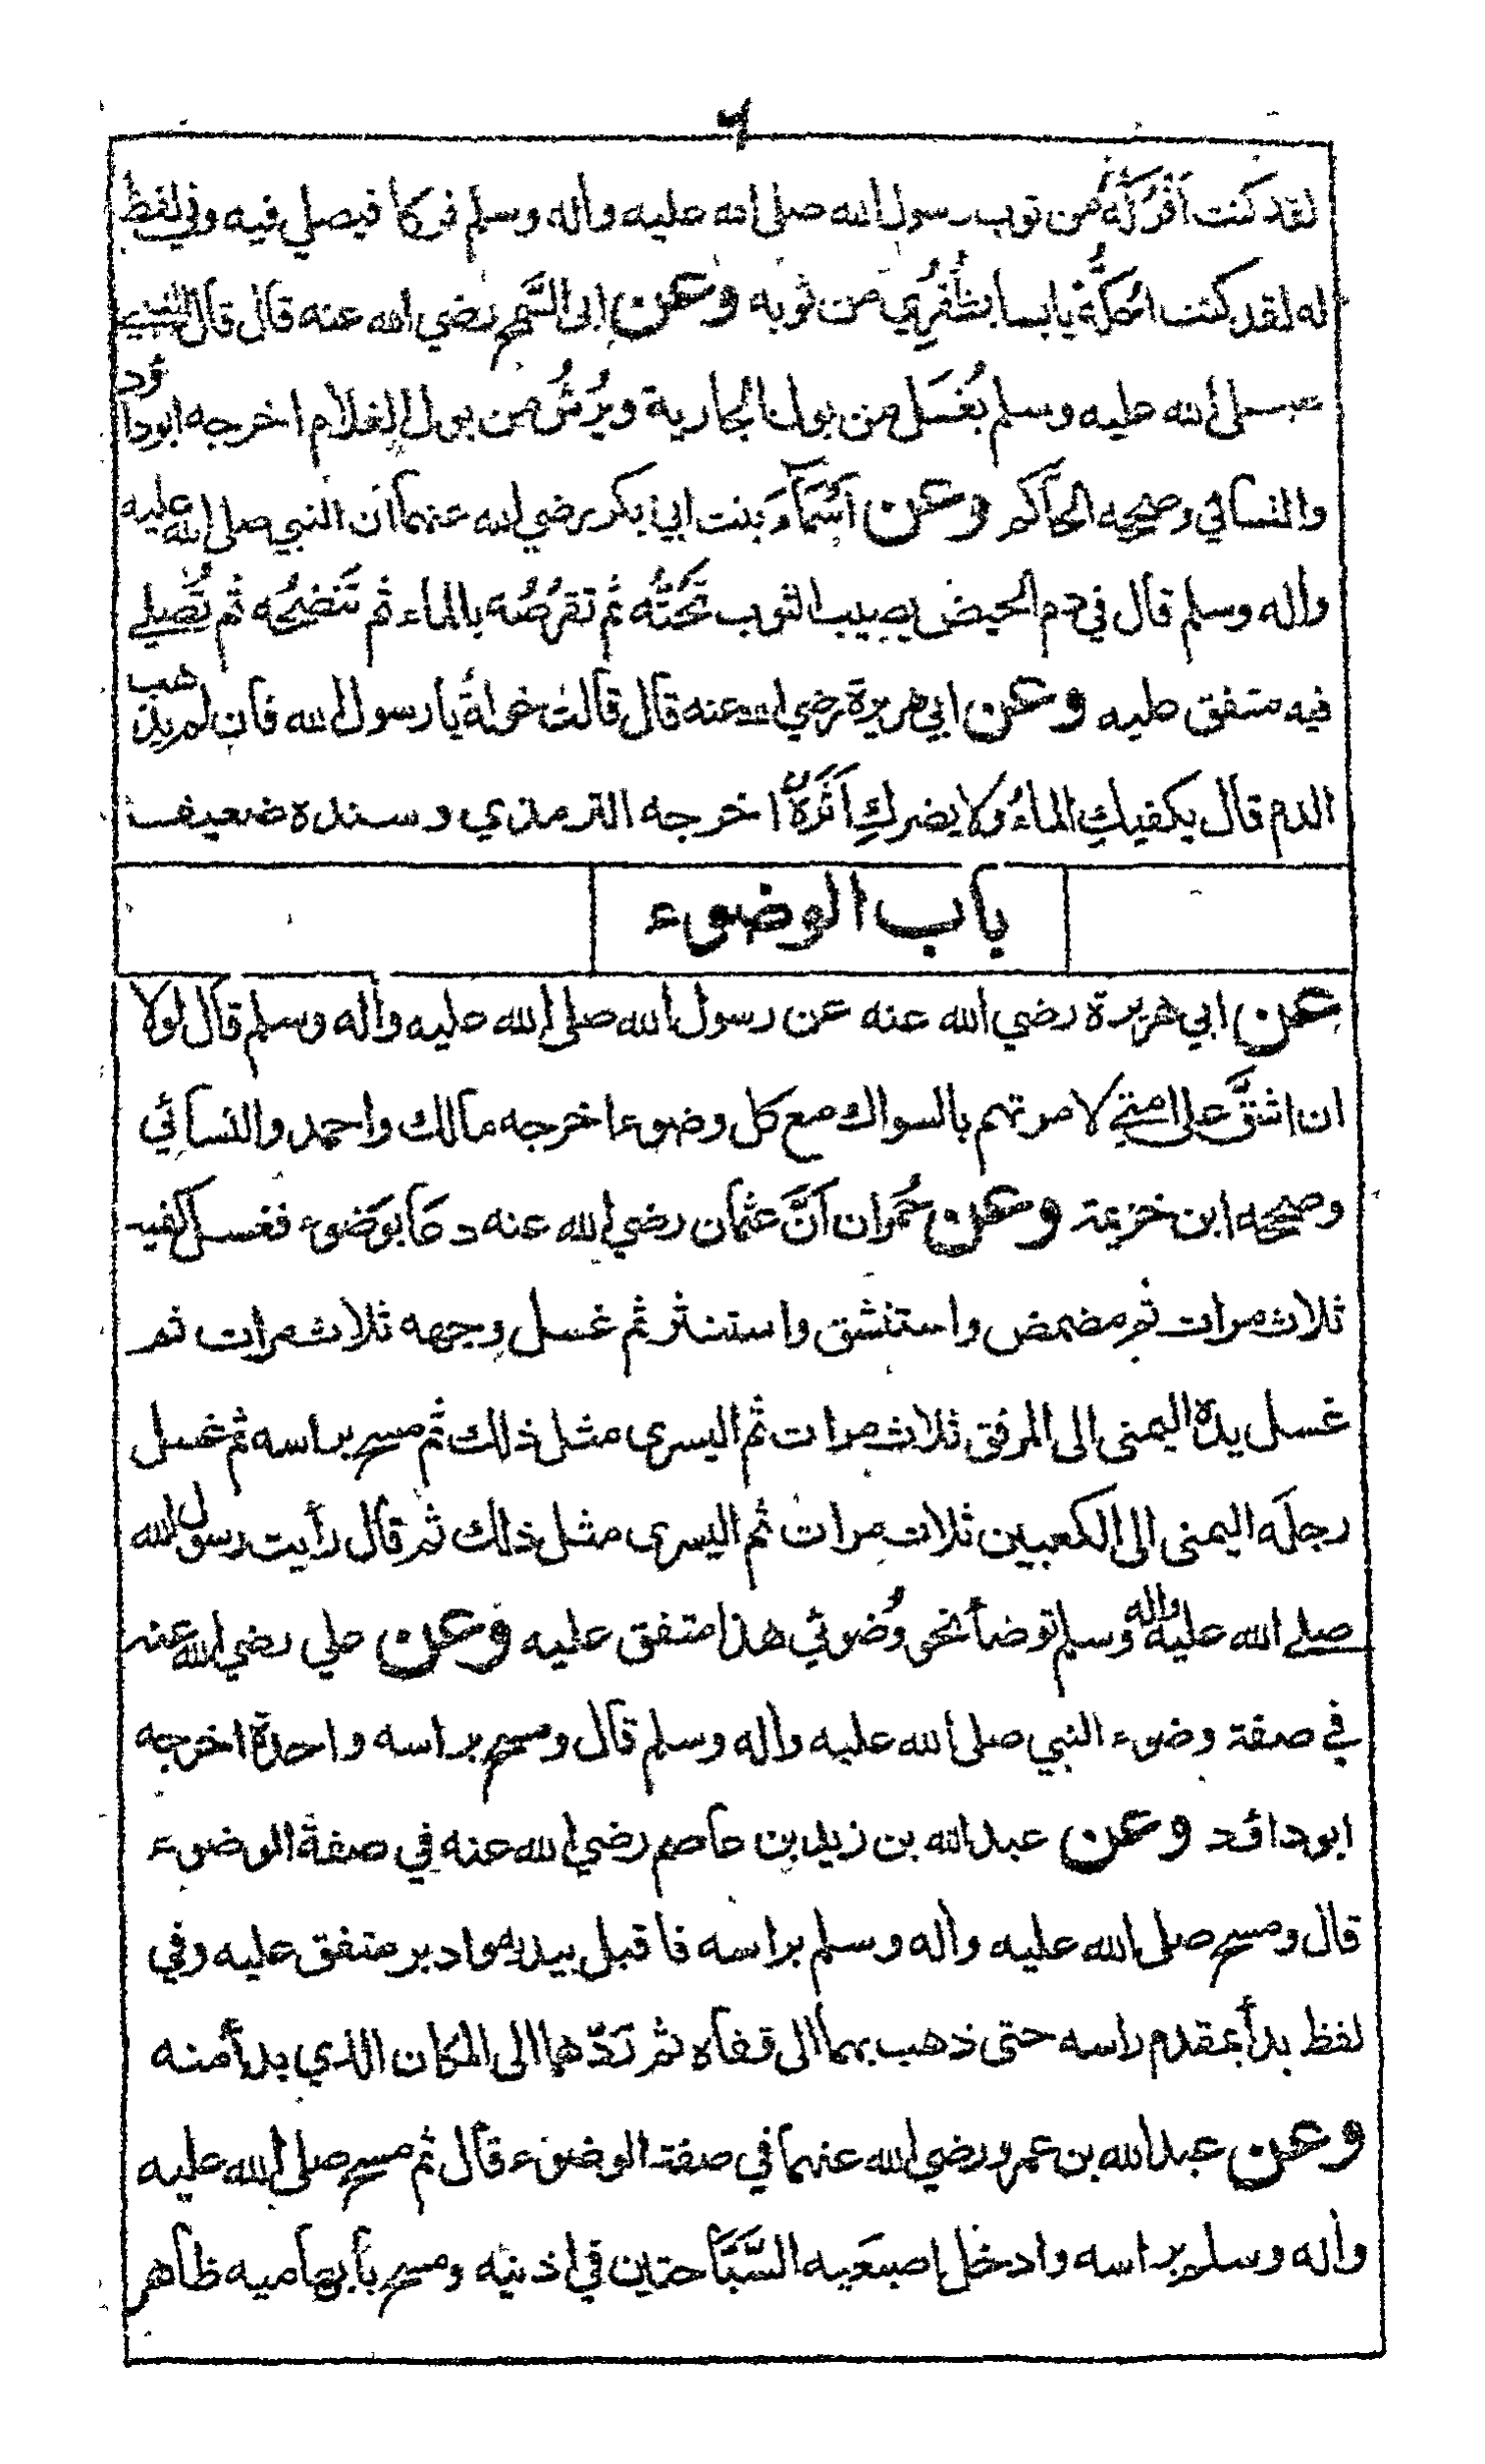 ٦
لقد كنت اَفْرُكُه من ثوب رسول الله صلى الله عليه واٰله وسلم فركا فيصلي فيه وفي لفظ
له لقد كنت احُكُّه يابسا بظُفُرِي من ثوبه وعن ابى السَّمح رضي الله عنه قال قال النبي
صلى الله عليه وسلم يُغْسَل من بول الجارية ويُرَشُّ من بول الغلام اخرجه ابوداؤد
والنسائي وصححه الحاكم وعن اَسْمَاءَ بنت ابي بكر رضي الله عنهما ان النبي صلى الله عليه
واٰله وسلم قال في دم الحيض يصيب الثوب تَحُتُّه ثم تقرُصُه بالماء ثم تَنضَحُه ثم تُصَلي
فيه متفق عليه وعن ابي هريرة رضي الله عنه قال قالت خولةُ يا رسول الله فان لم يذهب
الدم قال يكفيكِ الماءُ ولا يضركِ اَثَرُهُ اخرجه الترمذي وسنده ضعيف
باب الوضوء
عن ابي هريرة رضي الله عنه عن رسول الله صلى الله عليه واٰله وسلم قال لولا
ان اشقَّ على امتي لامرتهم بالسواك مع كل وضوء اخرجه مالك واحمد والنسائي
وصححه ابن خزيمة وعن حُمران اَنَّ عثمان رضي الله عنه دعا بوَضوء فغسل كفيه
ثلاث مرات ثم مضمض واستنشق واستنثر ثم غسل وجهه ثلاث مرات ثم
غسل يده اليمنى الى المرفق ثلاث مرات ثم اليسرى مثل ذلك ثم مسح براسه ثم غسل
رجلَه اليمنى الى الكعبين ثلاث مرات ثم اليسرى مثل ذلك ثم قال رأيت رسول الله
صلى الله عليه واٰله وسلم توضأ نحو وُضوئي هذا متفق عليه وعن علي رضي الله عنه
في صفة وضوء النبي صلى الله عليه واٰله وسلم قال ومسح براسه واحدة اخرجه
ابوداؤد وعن عبد الله بن زيد بن عاصم رضي الله عنه في صفة الوضوء
قال ومسح صلى الله عليه واٰله وسلم براسه فاقبل بيديه وادبر متفق عليه وفي
لفظ بدأ بمقدم راسه حتى ذهب بهما الى قفاه ثم رَدّهما الى المكان الذي بدأ منه
وعن عبد الله بن عمرو رضي الله عنهما في صفة الوضوء قال ثم مسح صلى الله عليه
واٰله وسلم براسه وادخل اصبعَيه السَّبَّاحتين في اذنيه ومسح بأبهاميه ظاهر